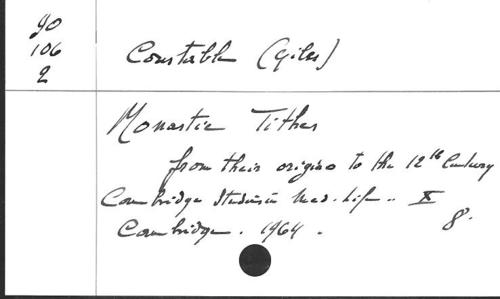 90
106
2
Constable (Giles)
Monastic Tithes
from their origins to the 12th Century
Cambridge Studies in Med. Life .. X
8.
Cambridge. 1964.